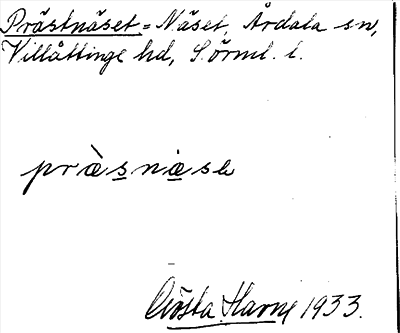 Prästnäset = Näset, Årdala sn,
Villåttinge hd, Sörml. l.
prὰsnàsə
Gösta Havne 1933.